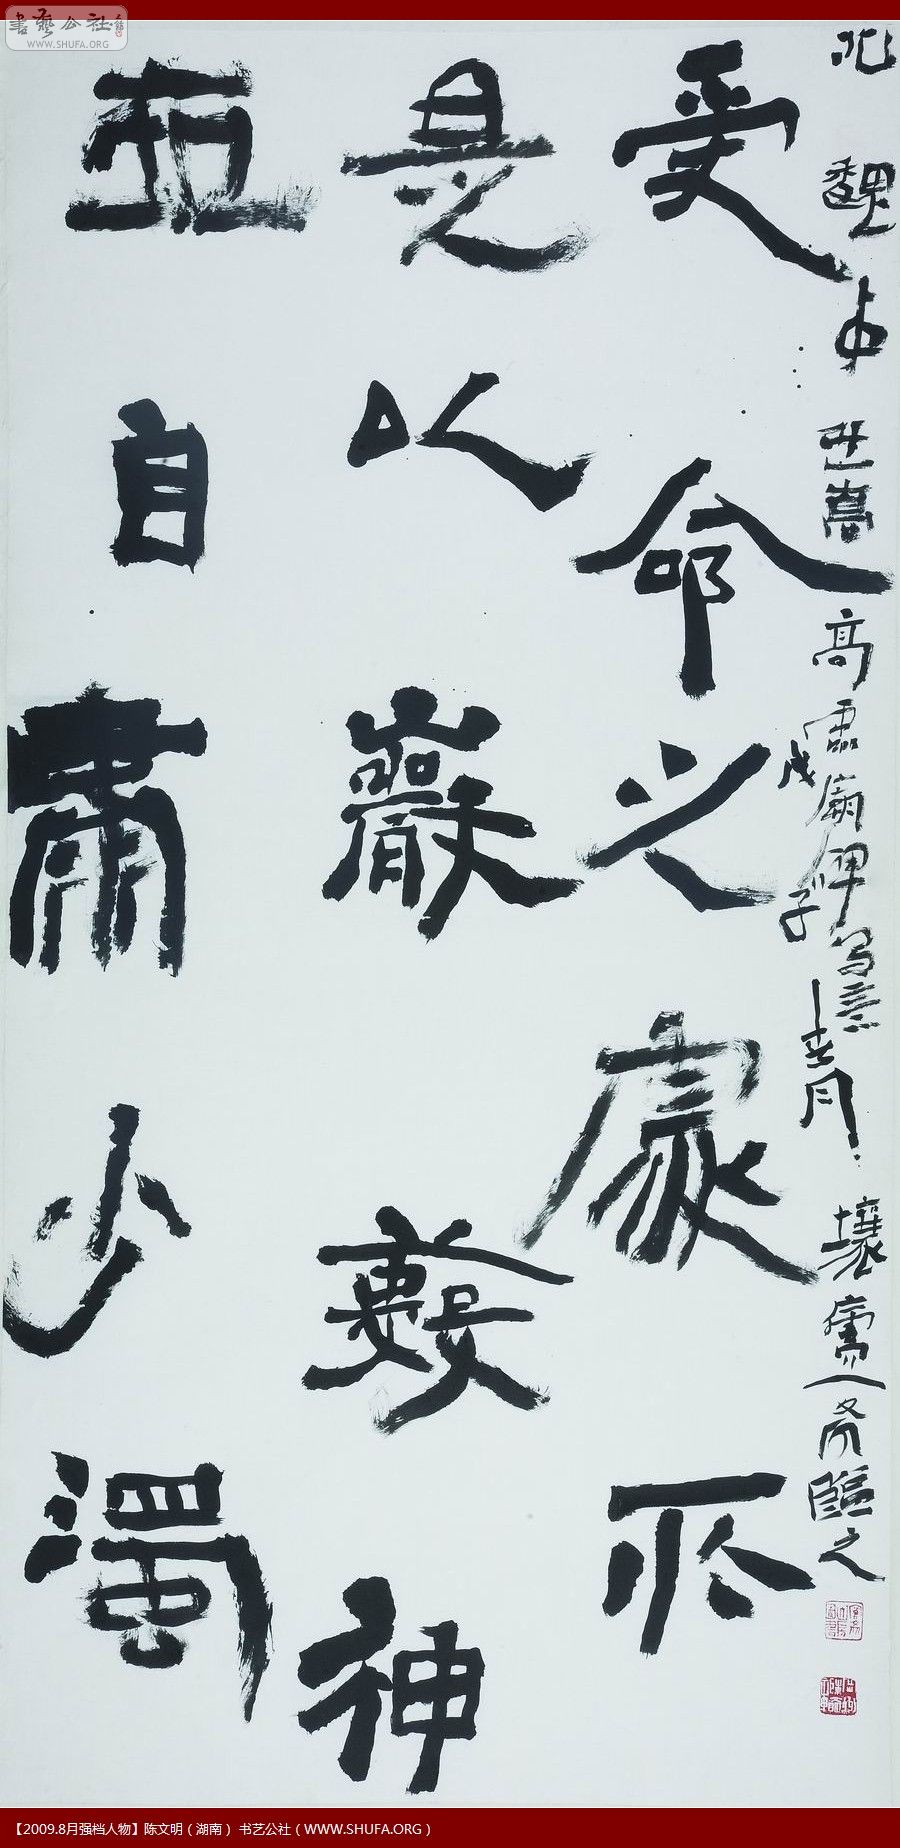 書藝公社
WWW.SHUFA.ORG
受命之處所
是以嚴數神
並自肅少濁
北魏中岳嵩高靈廟碑
戊子
寫意
春月
壤廬人
臨之
【2009.8月强档人物】陈文明（湖南） 书艺公社（WWW.SHUFA.ORG）